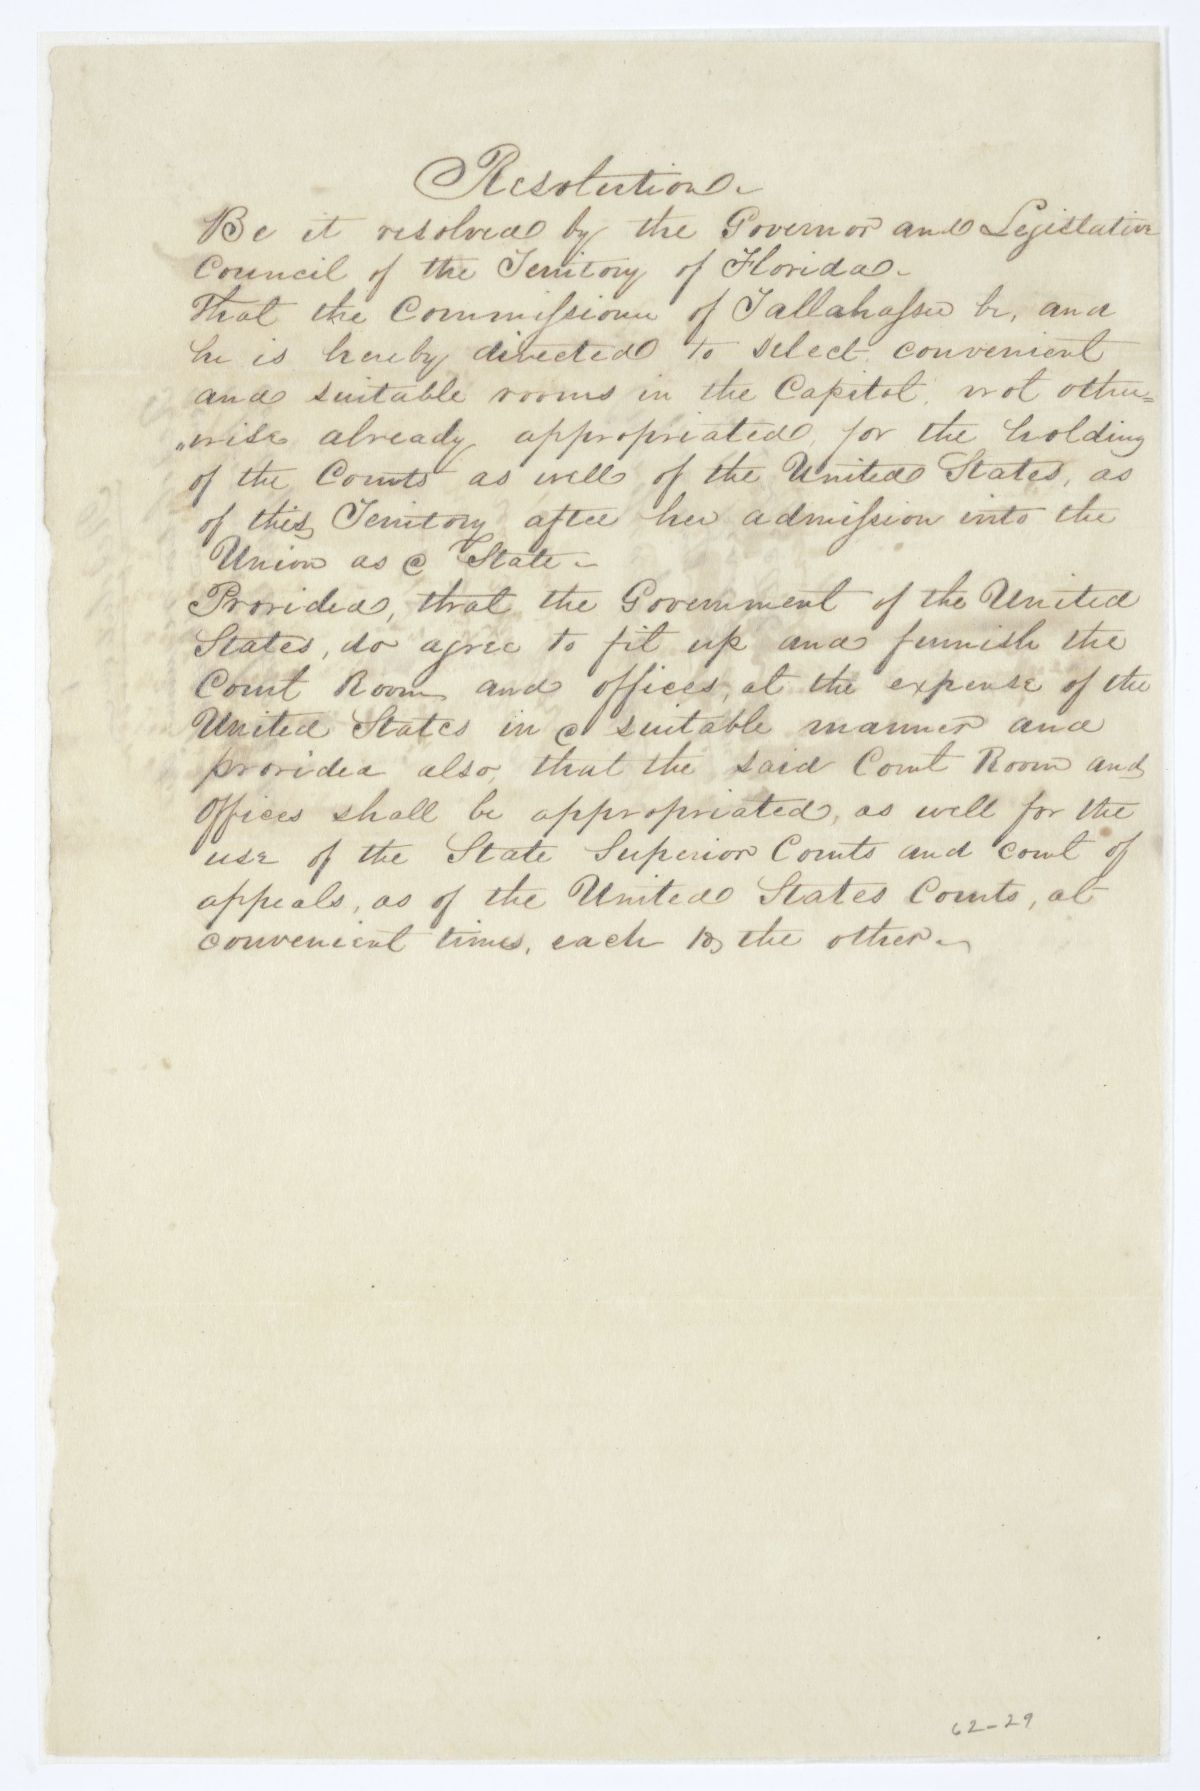 Resolution.
Be it resolved by the Governor and Legislative
Council of the Territory of Florida.
That the Commissioner of Tallahassee be, and
he is hereby directed to select convenient
and suitable rooms in the Capitol, not other=
"wise already appropriated, for the holding
of the Courts as well of the United States, as
of this Territory after her admission into the
Union as a State.
Provided, that the Government of the United
States, do agree to fit up and furnish the
Court Room and offices, at the expense of the
United States in a suitable manner and
provided also, that the said Court Room and
Offices shall be appropriated, as well for the
use of the State Superior Courts and court of
appeals, as of the United States Courts, at
convenient times, each to the other.
62-29